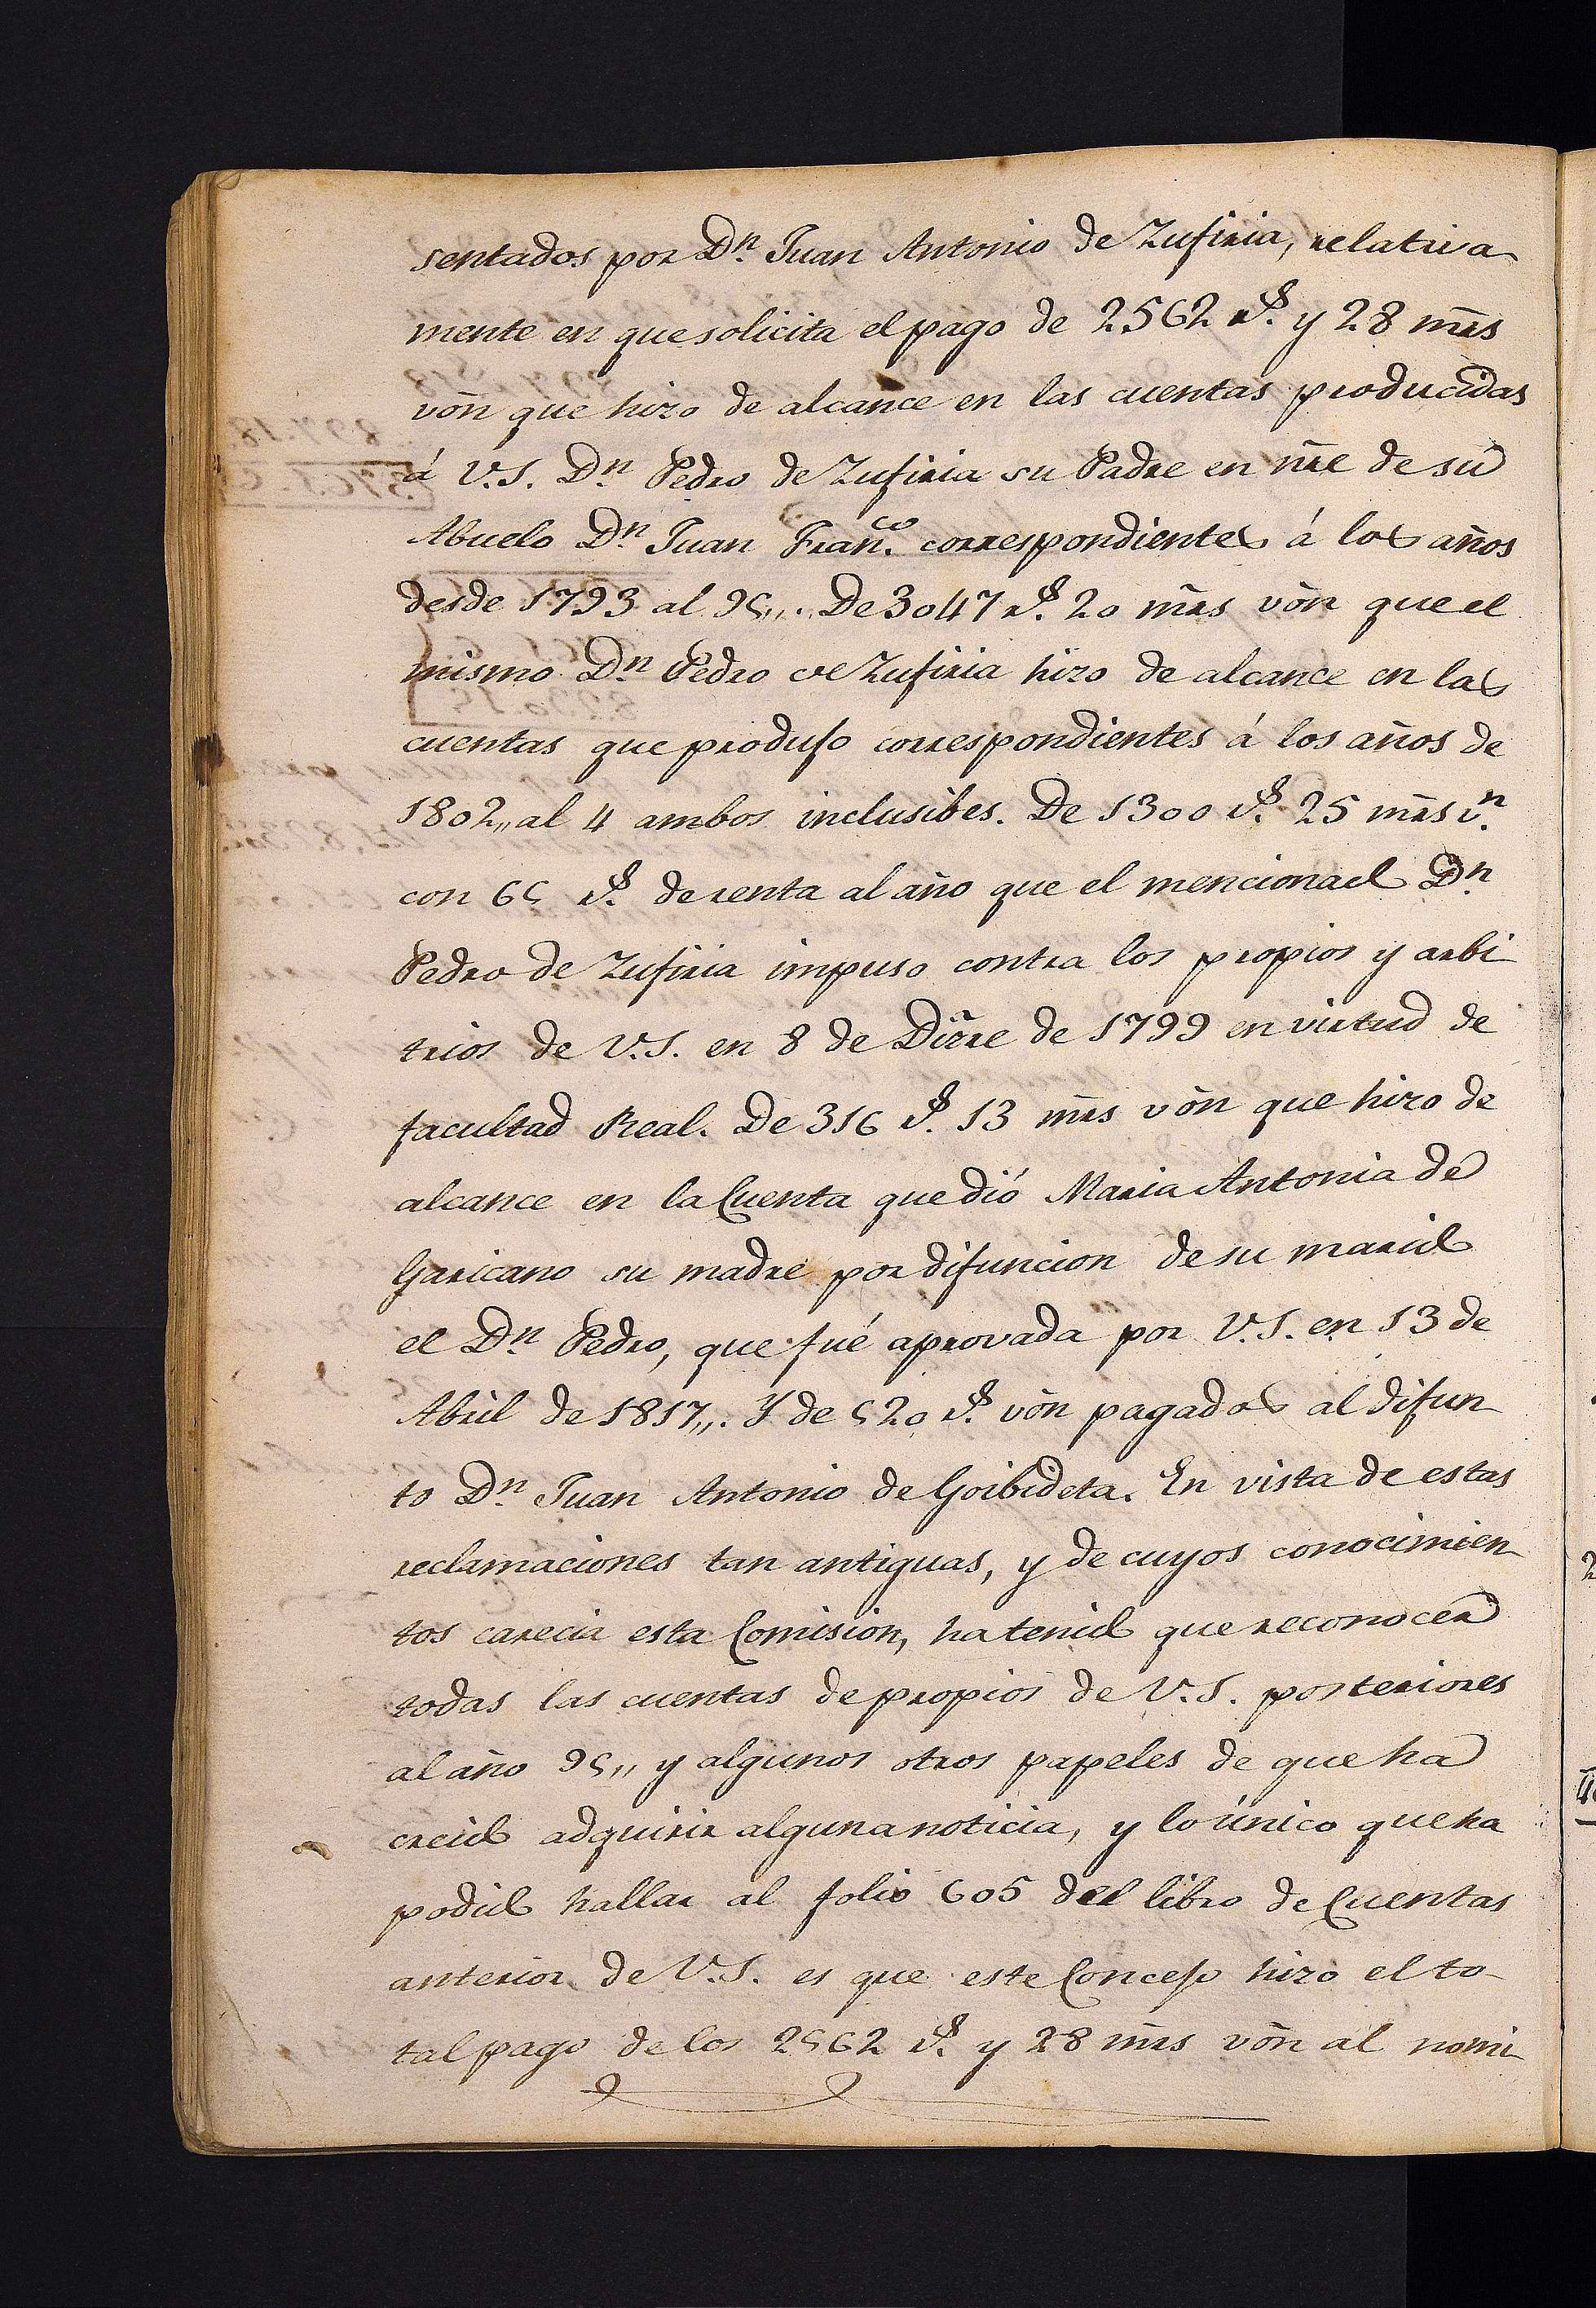 sentados por Dn. Juan Antonio de Zufiria, relativa
mente en que solicita el pago de 2562 rs. y 28 mrs̃
von̄ que hizo de alcance en las cuentas producidas
á V.S. Dn. Pedro de Zufiria su Padre en nr̄e de su
Abuelo Dn. Juan Franco. correspondientes á los años
desde 1793 al 95,,. De 3047 rs. 20 mrs̃ von̄ que el
mismo Dn. Pedro de Zufiria hizo de alcance en las
cuentas que produjo correspondientes á los años de
1802,, al 4 ambos inclusibes. De 1300 rs. 25 mrs̃ vn.
con 65 rs. de renta al año que el mencionado Dn.
Pedro de Zufiria impuso contra los propios y arbi
trios de V.S. en 8 de Diz̃re de 1799 en virtud de
facultad Real. De 316 rs. 13 mrs̃ von̄ que hizo de
alcance en la Cuenta que dió Maria Antonia de
Garicano su madre por difuncion de su marido
el Dn. Pedro, que fué aprovada por V.S. en 13 de
Abril de 1817,,. Y de 520 rs. von̄ pagados al difun
to Dn. Juan Antonio de Goibideta. En vista de estas
reclamaciones tan antiguas, y de cuyos conocimien
tos carecia esta Comision, ha tenido que reconocer
todas las cuentas de propios de V.S. posteriores
al año 95,, y algunos otros papeles de que ha
creido adquirir alguna noticia, y lo único que ha
podido hallar al folio 605 del libro de Cuentas
anterior de V.S. es que este Concejo hizo el to-
tal pago de los 2562 rs. y 28 mrs̃ von̄ al nomi